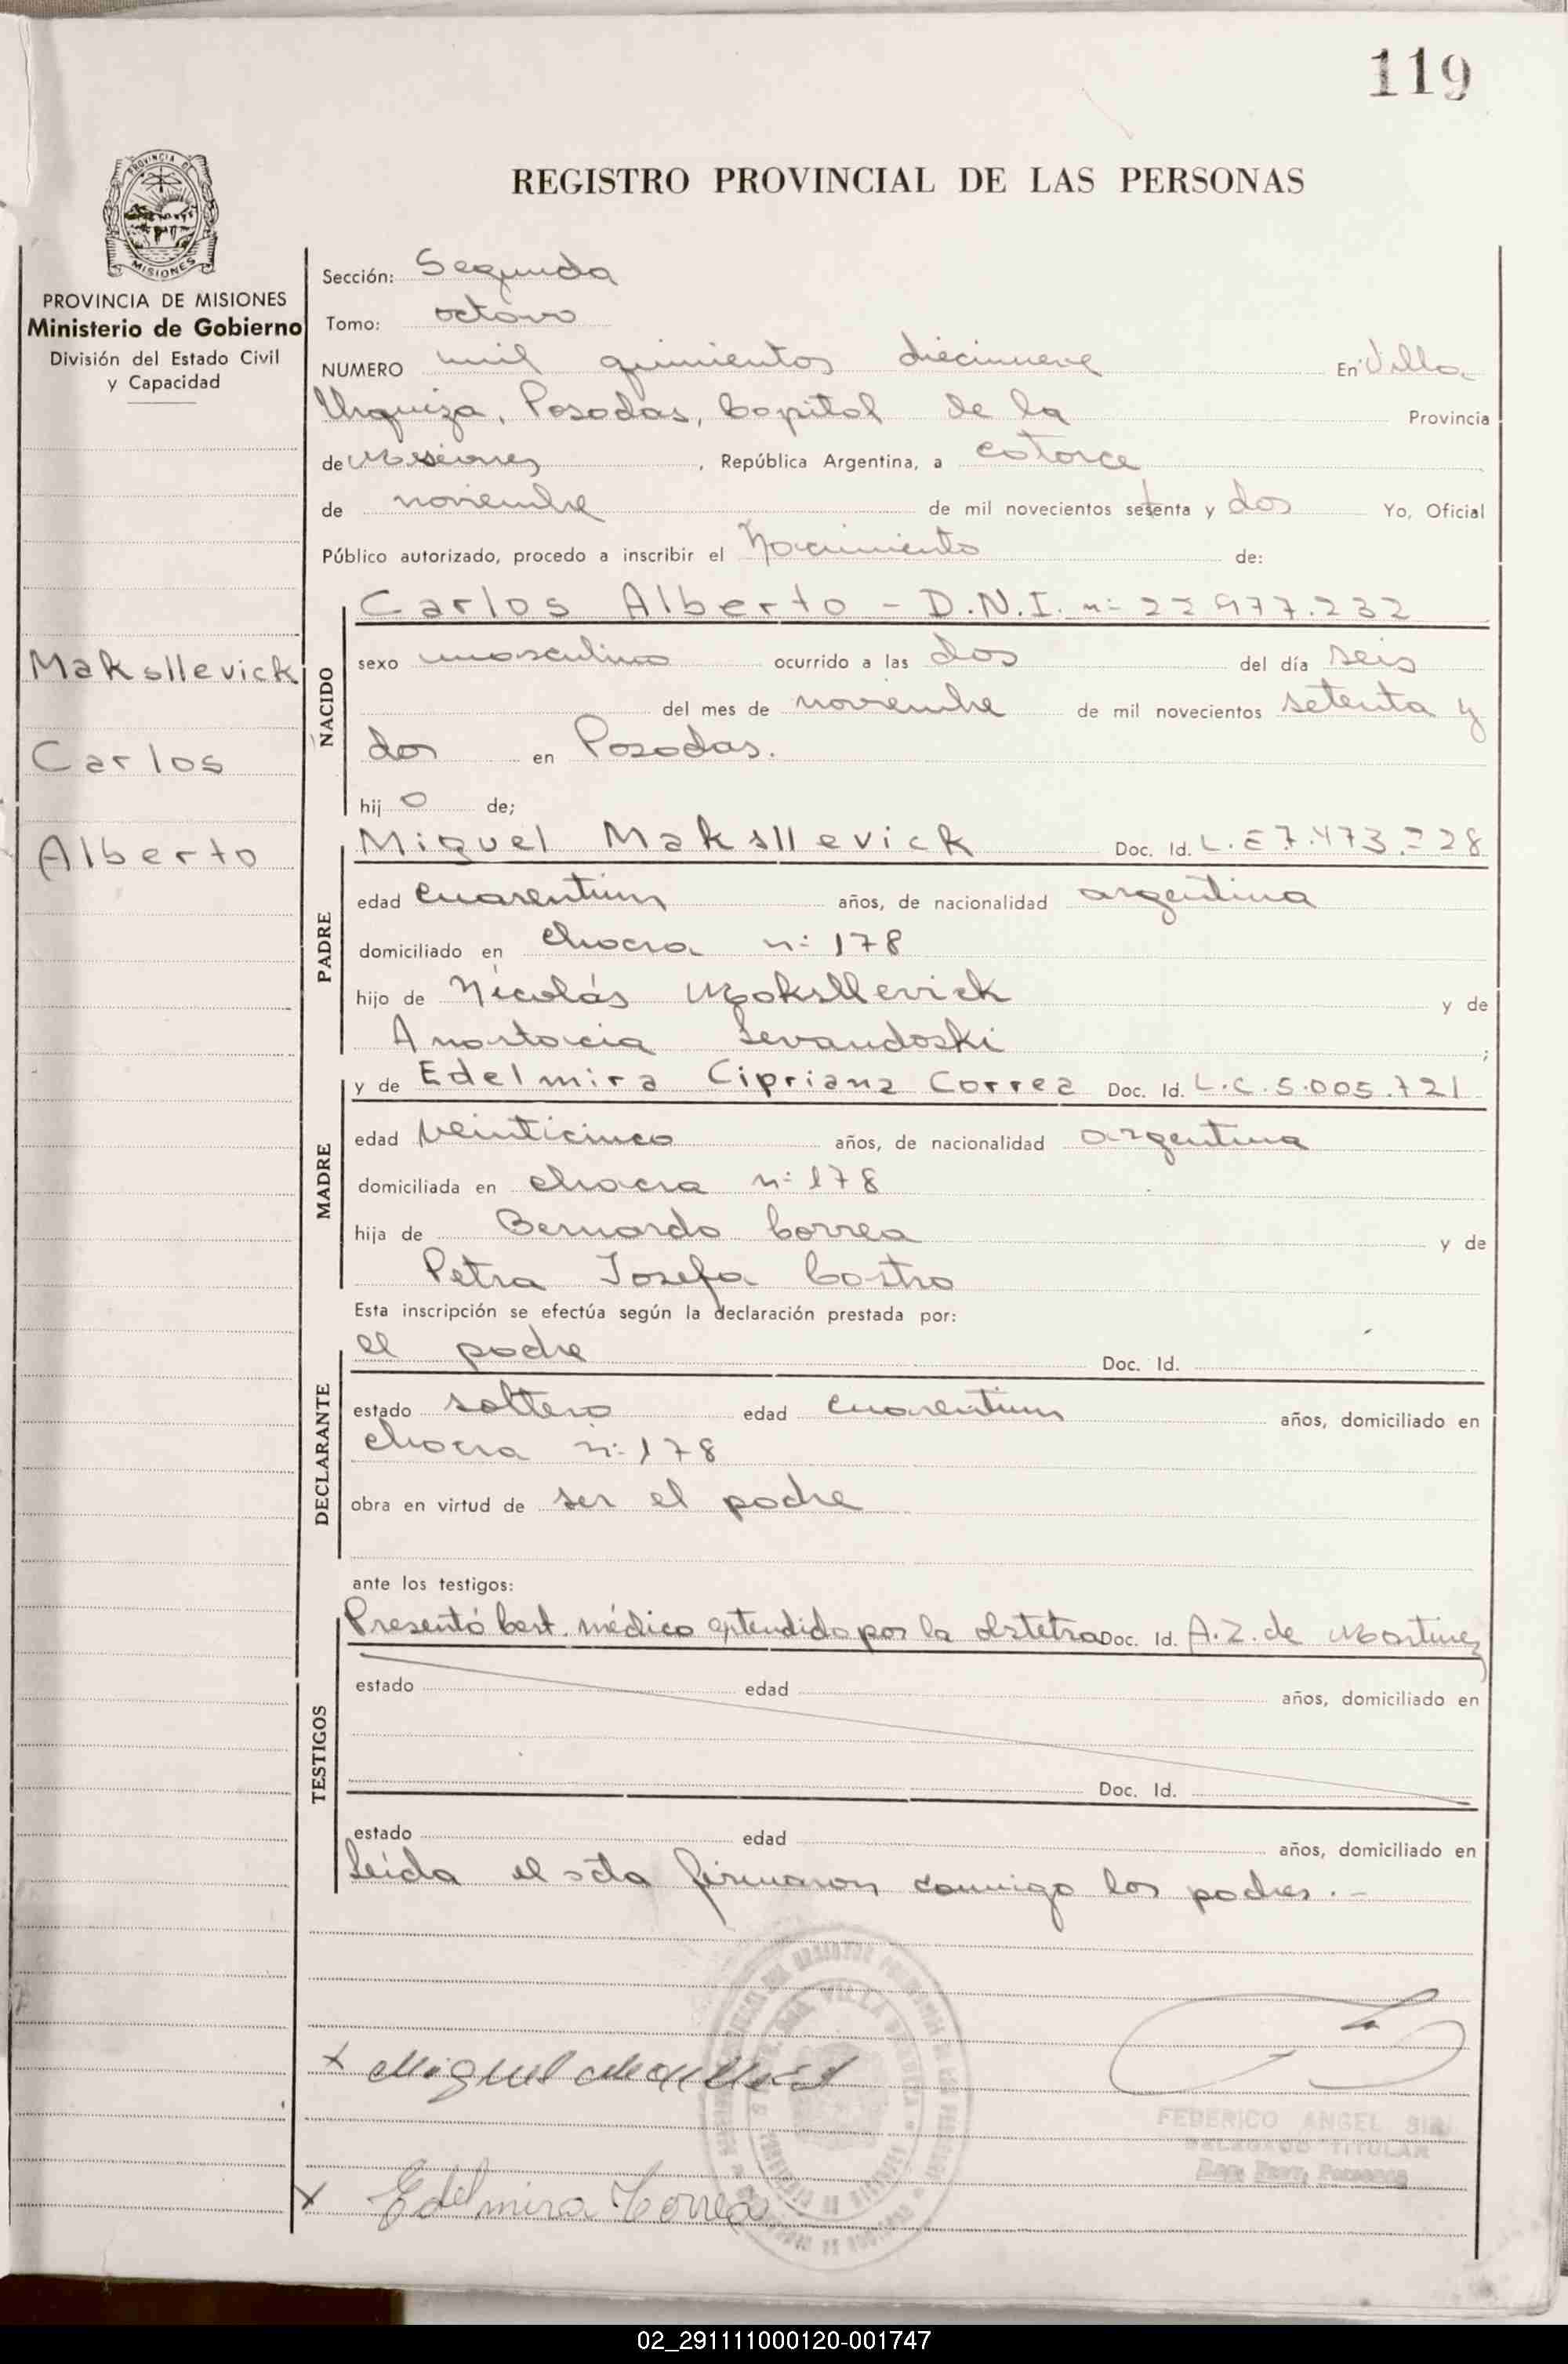 119
PROVINCIA DE
MISIONES
REGISTRO PROVINCIAL DE LAS PERSONAS
PROVINCIA DE MISIONES
Ministerio de Gobierno
División del Estado Civil
y Capacidad
Maksllevick
Carlos
Alberto
Sección: Segunda
Tomo: octavo
NUMERO mil quinientos diecinueve En Villa
Urquiza, Posadas, Capital de la Provincia
de Misiones, República Argentina, a catorce
de noviembre de mil novecientos setenta y dos Yo, Oficial
Público autorizado, procedo a inscribir el Nacimiento de:
NACIDO
Carlos Alberto - D.N.I. nº 977.232
sexo masculino ocurrido a las dos del día seis
del mes de noviembre de mil novecientos setenta y
dos en Posadas.
hij o de;
PADRE
Miguel Maksllevick Doc. Id. L.E 7.473. 28
edad cuarentiun años, de nacionalidad argentina
domiciliado en chacra nº 178
hijo de Nicolás Maksllevick y de
Anastacia Sevandoski ;
MADRE
y de Edelmira Cipriana Correa Doc. Id. L.C. 5.005.721
edad veinticinco años, de nacionalidad argentina
domiciliada en chacra nº 178
hija de Bernardo Correa y de
Petra Josefa Castro
Esta inscripción se efectúa según la declaración prestada por:
DECLARANTE
el padre Doc. Id.
estado soltero edad cuarentiun años, domiciliado en
chacra nº 178
obra en virtud de ser el padre
ante los testigos:
TESTIGOS
Presentó Cert. médico extendido por la obstetra Doc. Id. A. Z. de Martinez
estado edad años, domiciliado en
Doc. Id.
estado edad años, domiciliado en
Leída el acta firmaron conmigo los padres. -
x Miguel
FEDERICO ANGEL
DELEGADO TITULAR
Reg. Prov. Personas
x Edelmira Correa
02_291111000120-001747